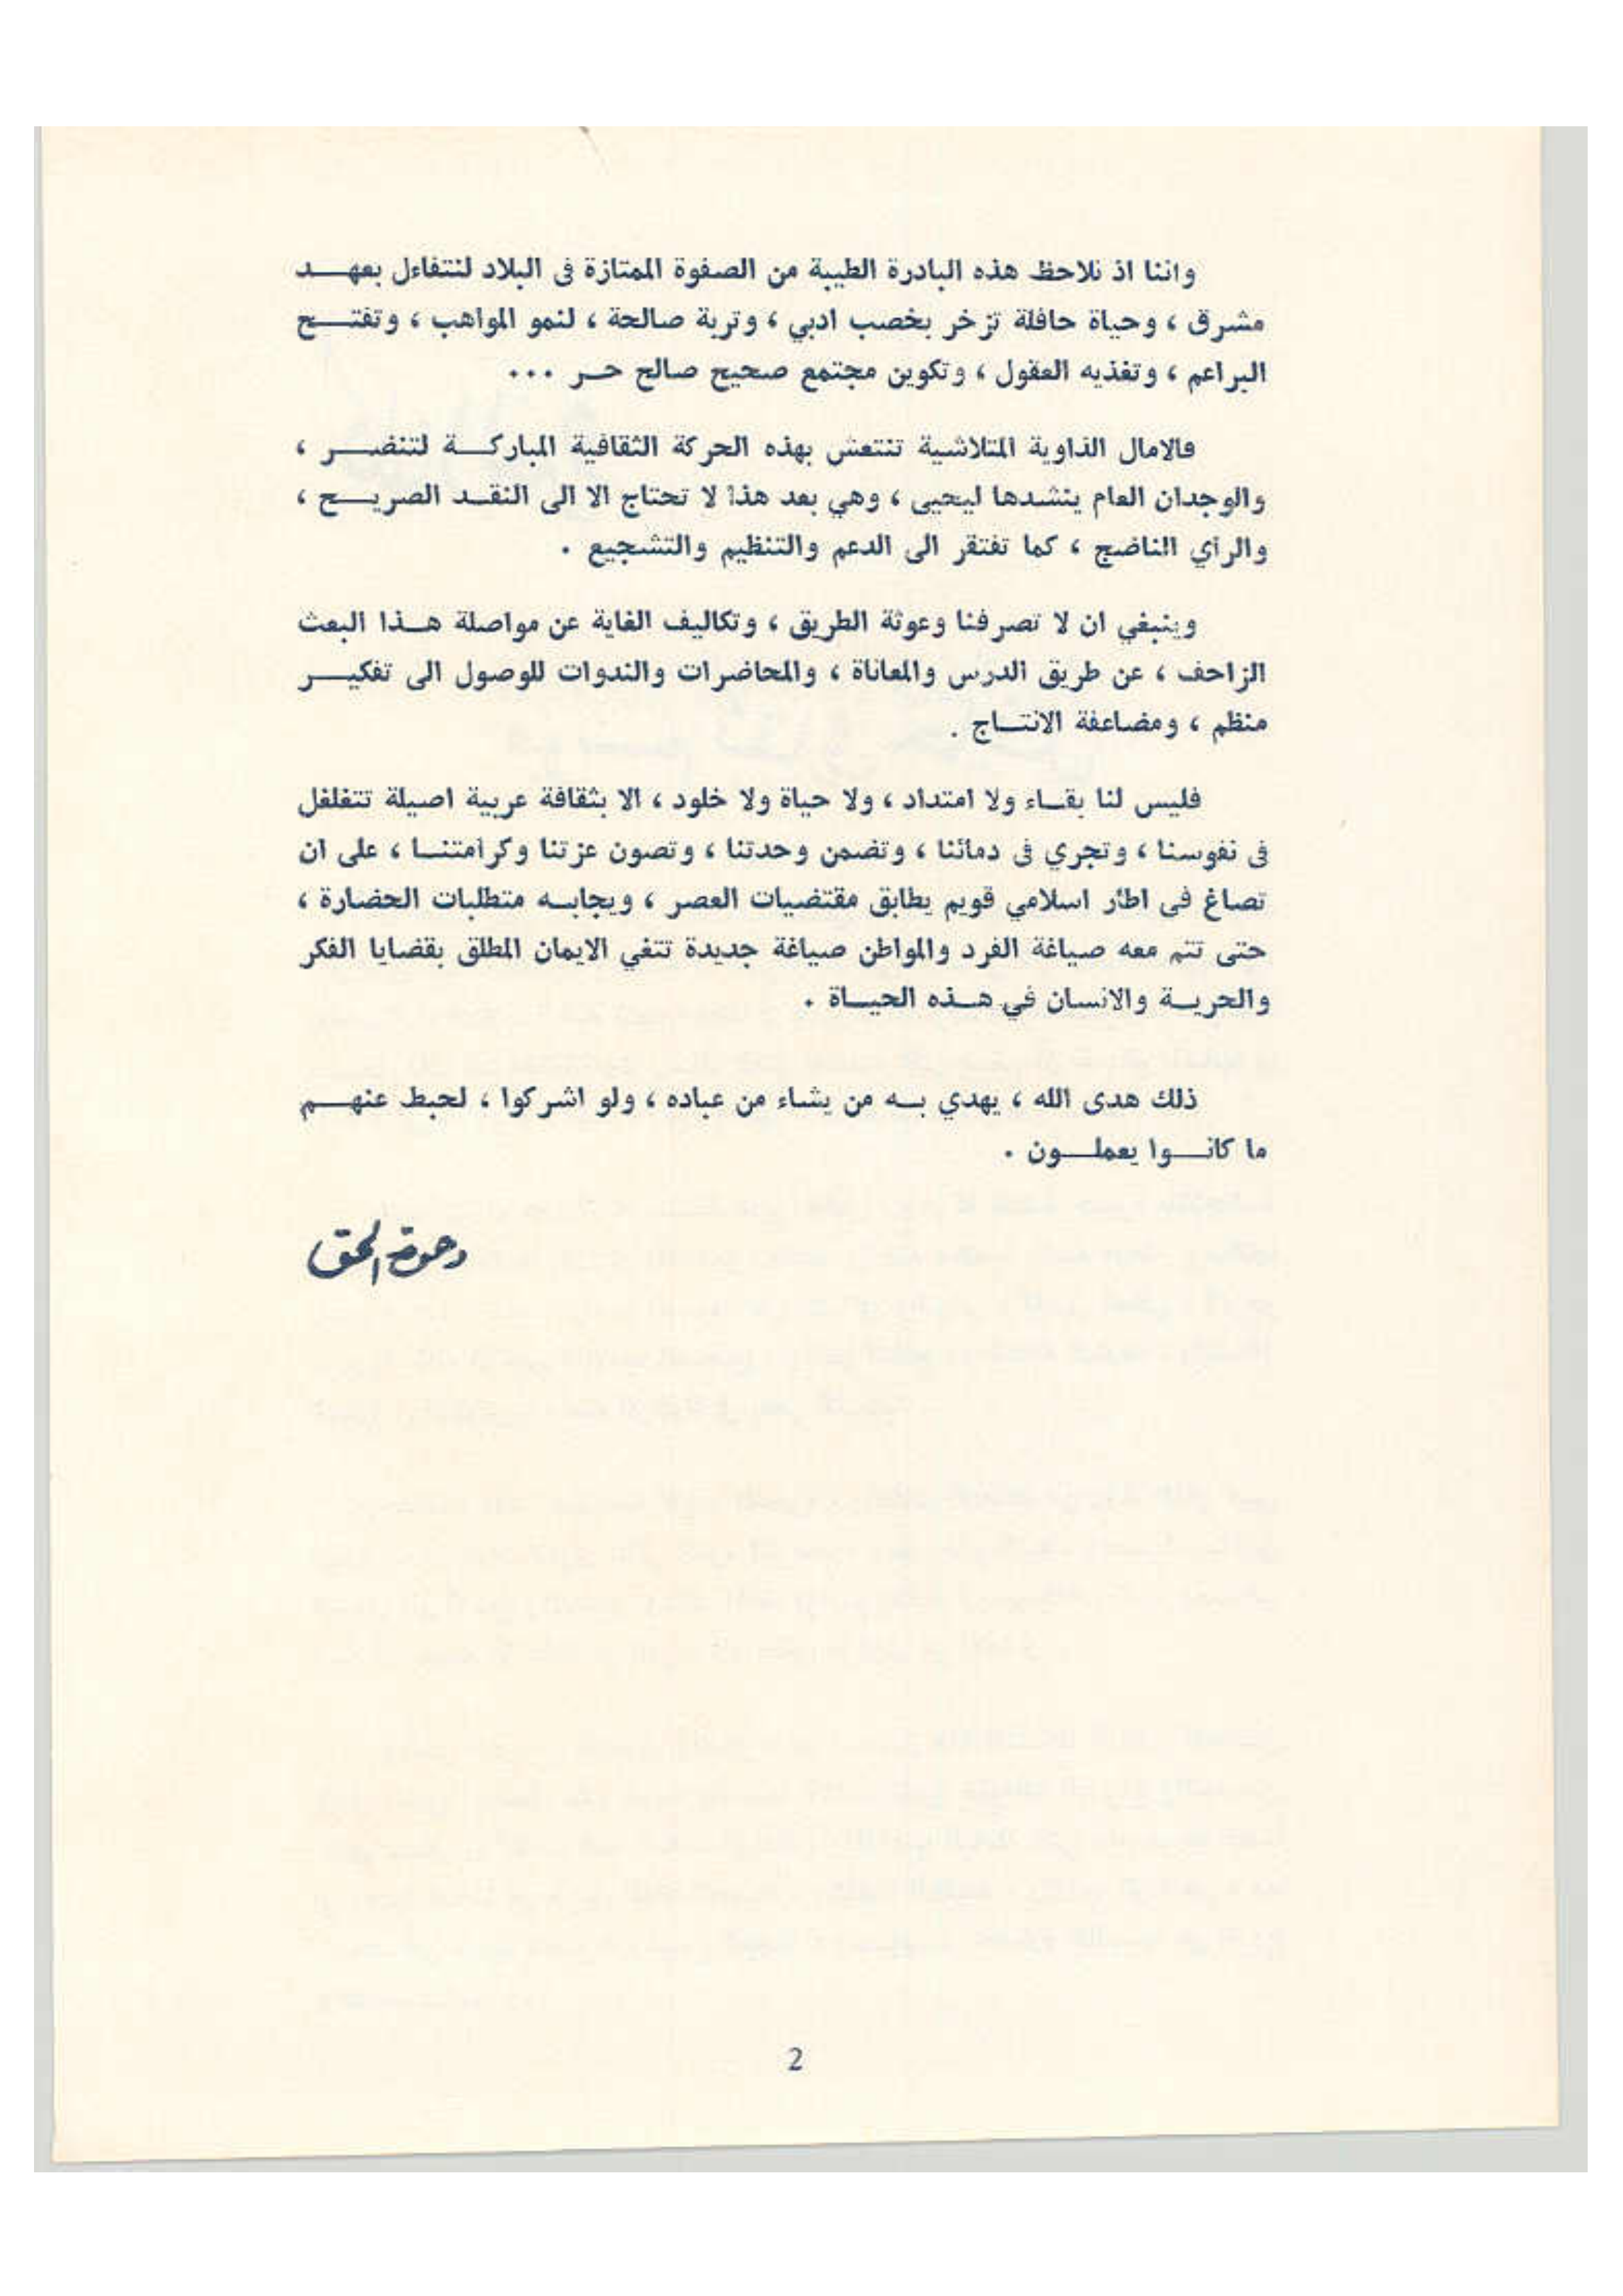 واننا اذ نلاحظ هذه البادرة الطيبة من الصفوة الممتازة في البلاد لنتفاءل بعهد
مشرق ، وحياة حافلة تزخر بخصب ادبي ، وتربة صالحة ، لنمو المواهب ، وتفتح
البراعم ، وتغذيه العقول ، وتكوين مجتمع صحيح صالح حر ...
فالامال الذاوية المتلاشية تنتعش بهذه الحركة الثقافية المباركة لتنضر ،
والوجدان العام ينشدها ليحيى ، وهي بعد هذا لا تحتاج الا الى النقد الصريح ،
والرأي الناضج ، كما تفتقر الى الدعم والتنظيم والتشجيع .
وينبغي ان لا تصرفنا وعوثة الطريق ، وتكاليف الغاية عن مواصلة هذا البعث
الزاحف ، عن طريق الدرس والمعاناة ، والمحاضرات والندوات للوصول الى تفكير
منظم ، ومضاعفة الانتاج .
فليس لنا بقاء ولا امتداد ، ولا حياة ولا خلود ، الا بثقافة عربية اصيلة تتغلغل
في نفوسنا ، وتجري في دمائنا ، وتضمن وحدتنا ، وتصون عزتنا وكرامتنا ، على ان
تصاغ في اطار اسلامي قويم يطابق مقتضيات العصر ، ويجابه متطلبات الحضارة ،
حتى تتم معه صياغة الفرد والمواطن صياغة جديدة تتغي الايمان المطلق بقضايا الفكر
والحرية والانسان في هذه الحياة .
ذلك هدى الله ، يهدي به من يشاء من عباده ، ولو اشركوا ، لحبط عنهم
ما كانوا يعملون .
دعوة الحق
2